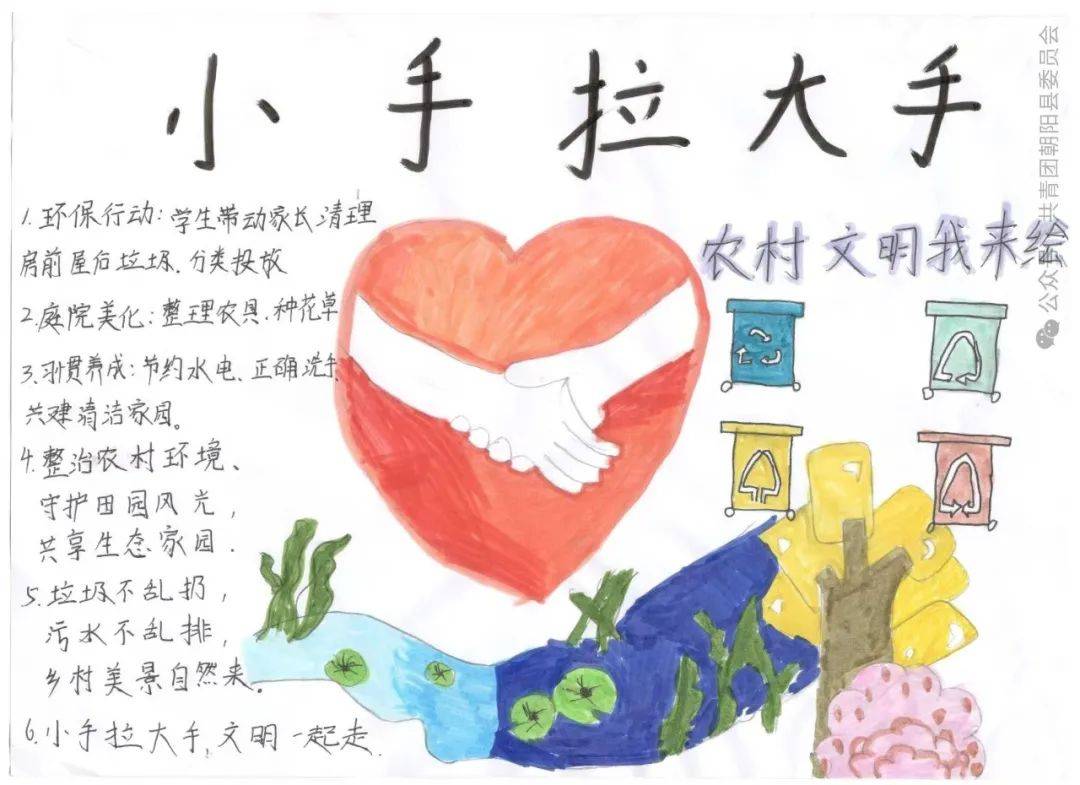 小手拉大手
农村文明我来绘
1.环保行动：学生带动家长清理
房前屋后垃圾、分类投放
2.庭院美化：整理农具、种花草
3.习惯养成：节约水电、正确洗手
共建清洁家园。
4.整治农村环境、
守护田园风光，
共享生态家园.
5.垃圾不乱扔，
污水不乱排，
乡村美景自然来。
6.小手拉大手，文明一起走.
公众号·共青团朝阳县委员会